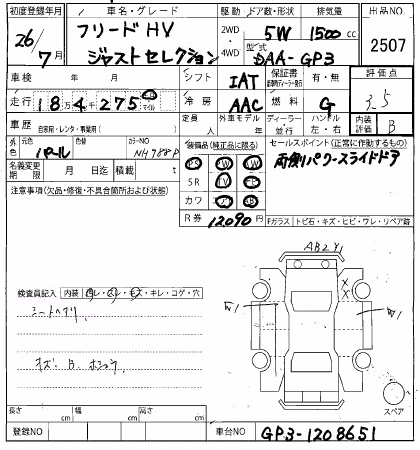 初度登録年月 車名・グレード 駆動 ドア数・形状 排気量 出品NO.
26/7月 フリードHV ジャストセレクション 2WD・4WD 5W 1500cc 2507
型式 DAA-GP3
車検 年 月 シフト IAT 保証書 有・無 評価点 3.5
走行 18万4千275 km マイル 冷房 AAC 燃料 G
車歴 自家用・レンタ・事業用( ) 定員 人 外車モデル 年 ディーラー・並行 ハンドル 左・右 内装評価 B
外色 元色 パール 色替 カラーNO NH788P
装備品(純正品に限る)
セールスポイント(正常に作動するもの)
両側パワースライドドア
名義変更期限 月 日迄 積載 t
PS
SR TV
カワ AB
注意事項(欠品・修復・不具合箇所および状態)
R券 12090円
Fガラス トビ石・キズ・ヒビ・ワレ・リペア跡
AB2 Y1
検査員記入 内装 ヨレ・スレ・キズ・キレ・コゲ・穴
X
X
W1
W1
キズ、B、ホショウ
スペア
長さ cm 幅 cm 高さ cm
登録NO 車台NO GP3-1208651